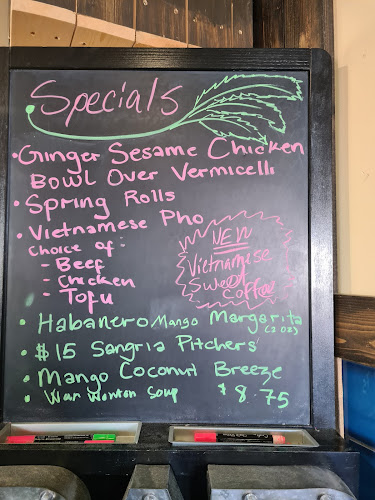 Specials
• Ginger Sesame Chicken
Bowl Over Vermicelli
• Spring Rolls
• Vietnamese Pho
Choice of:
- Beef
- Chicken
- Tofu
NEW
Vietnamese
Sweet
Coffee
• Habanero Mango Margarita
(2 oz)
• $15 Sangria Pitchers
• Mango Coconut Breeze
• War Wonton Soup $8.75